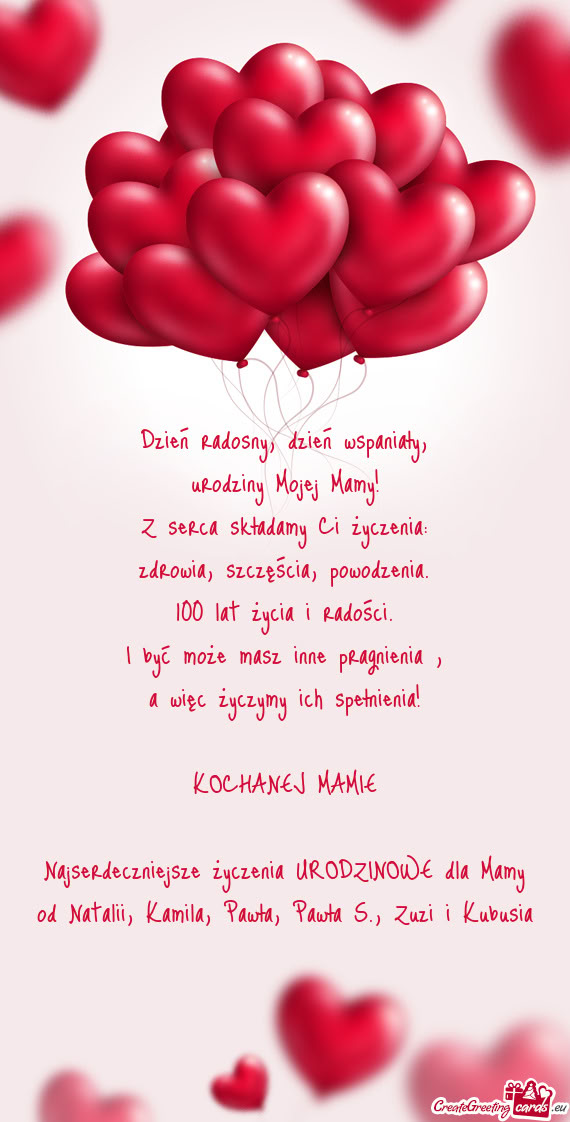 Dzień radosny, dzień wspaniały,
urodziny Mojej Mamy!
Z serca składamy Ci życzenia:
zdrowia, szczęścia, powodzenia.
100 lat życia i radości.
I być może masz inne pragnienia ,
a więc życzymy ich spełnienia!
KOCHANEJ MAMIE
Najserdeczniejsze życzenia URODZINOWE dla Mamy
od Natalii, Kamila, Pawła, Pawła S., Zuzi i Kubusia
CreateGreeting cards .eu